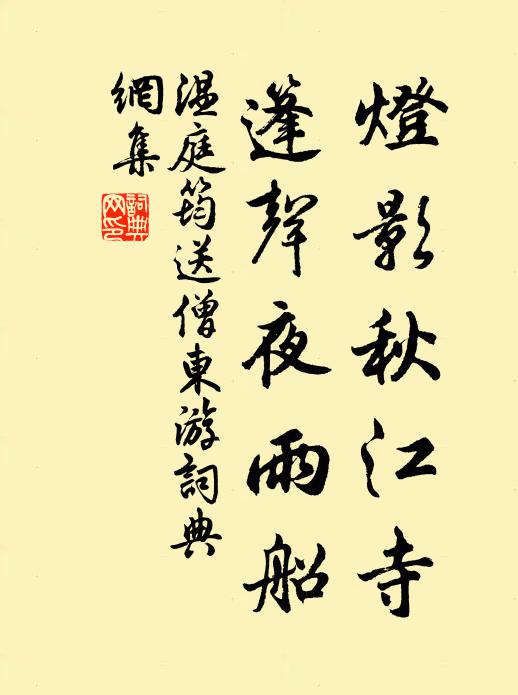 燈影秋江寺
篷聲夜雨船
温庭筠送僧東游詞典
網集
詞典
网印